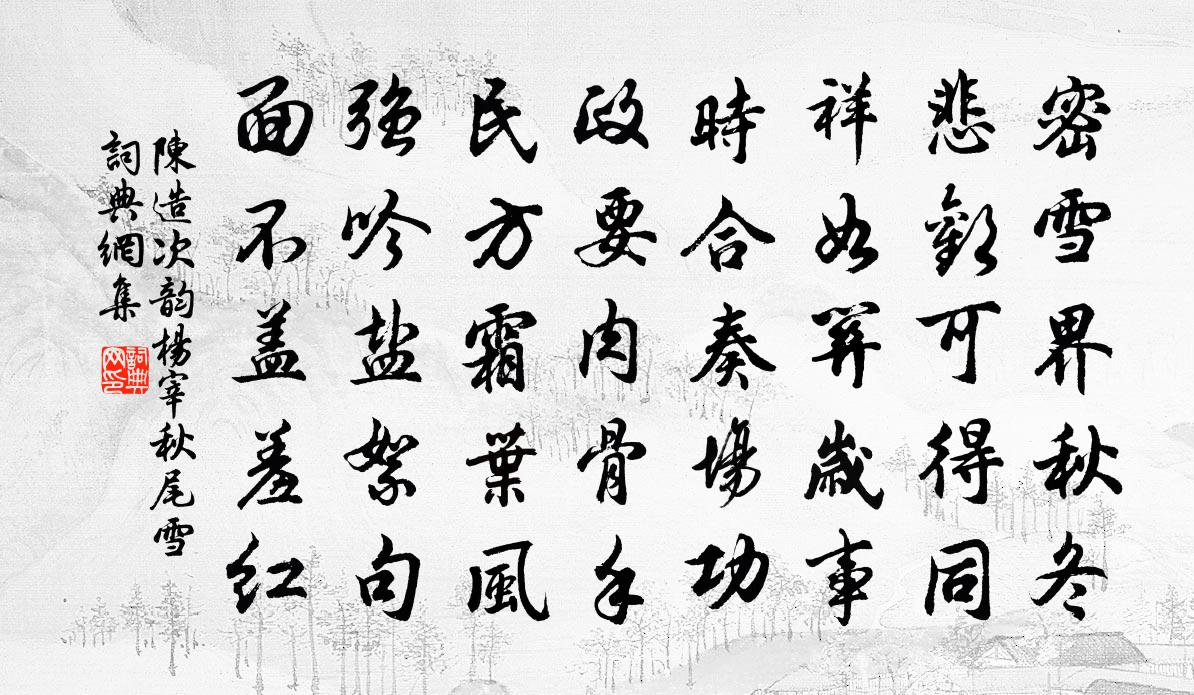 密雪界秋冬
悲歡可得同
祥如算歲事
時合奏場功
政要肉骨手
民方霜葉風
強吟盐絮句
面不盖羞红
陳造次韵楊宰秋尾雪
詞典網集
詞典
网印